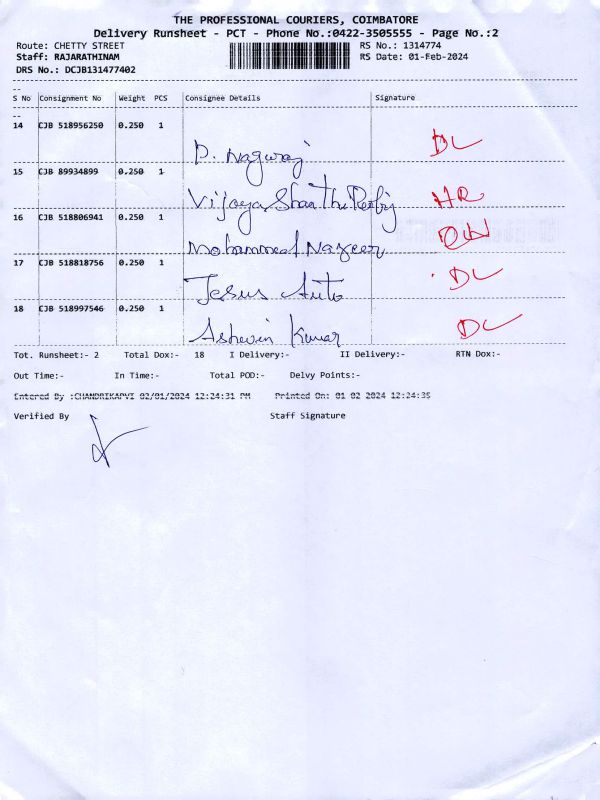 THE PROFESSIONAL COURIERS, COIMBATORE
Delivery Runsheet - PCT - Phone No.:0422-3505555 - Page No.:2
Route: CHETTY STREET RS No.: 1314774
Staff: RAJARATHINAM RS Date: 01-Feb-2024
DRS No.: DCJB131477402
S No Consignment No Weight PCS Consignee Details Signature
14 CJB 518956250 0.250 1
D. Nagaraj DL
15 CJB 89934899 0.250 1
Vijaya Shanthi HR
16 CJB 518806941 0.250 1
Mohammed Nazeer
17 CJB 518818756 0.250 1
Jesus Auto DL
18 CJB 518997546 0.250 1
Ashwin Kumar DL
Tot. Runsheet:- 2 Total Dox:- 18 I Delivery:- II Delivery:- RTN Dox:-
Out Time:- In Time:- Total POD:- Delvy Points:-
Entered By :CHANDRIKAPVI 02/01/2024 12:24:31 PM Printed On: 01 02 2024 12:24:35
Verified By Staff Signature